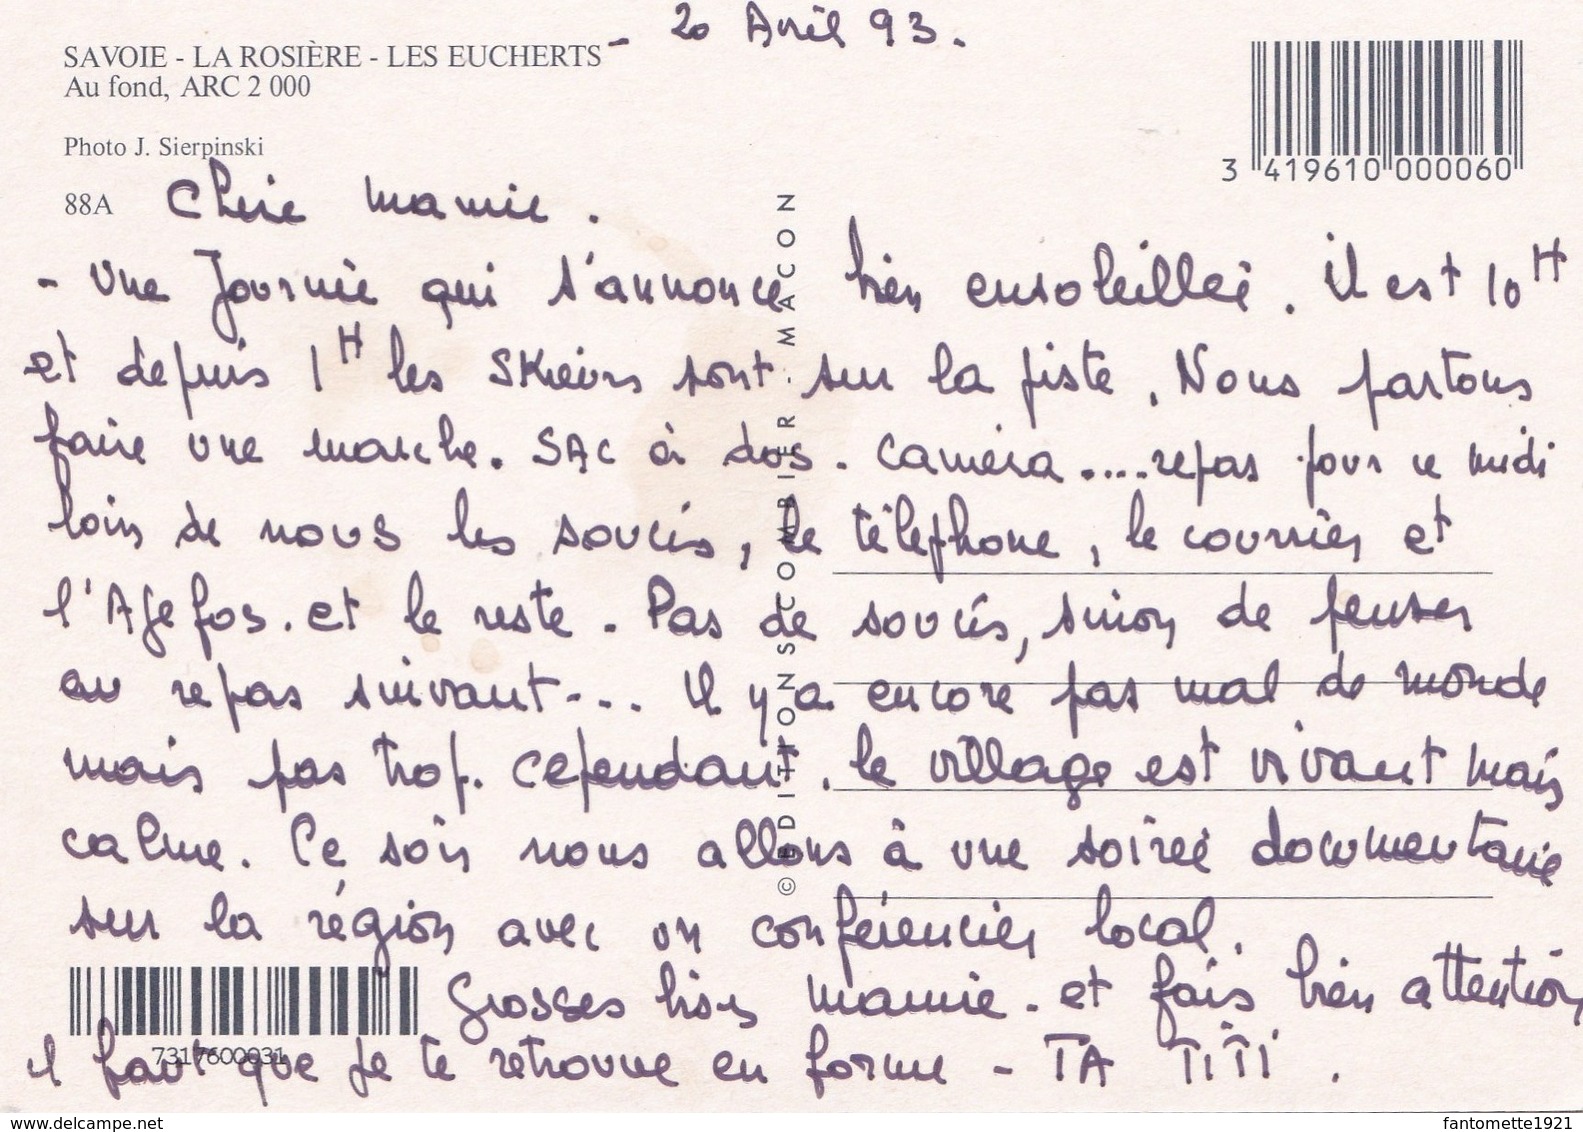 - 20 Avril 93.
SAVOIE - LA ROSIÈRE - LES EUCHERTS
Au fond, ARC 2 000
Photo J. Sierpinski
3 419610 000060
88A
Chère mamie.
- Une Journée qui s'annonce bien ensoleillée. Il est 10H
et depuis 1H les Skieurs sont sur la piste. Nous partons
faire une marche. SAC à dos. Caméra....repas pour ce midi
loin de nous les soucis, le téléphone, le courrier et
l'Agefos. et le reste. Pas de soucis, sinon de penser
au repas suivant... Il y a encore pas mal de monde
mais pas trop. cependant. le village est vivant mais
calme. Ce soir nous allons à une soirée documentaire
sur la région avec un conférencier local.
Grosses bises mamie. et fais bien attention
il faut que je te retrouve en forme - TA TITI.
7317600031
© EDITIONS SCOMBIER - MACON
www.delcampe.net
fantomette1921